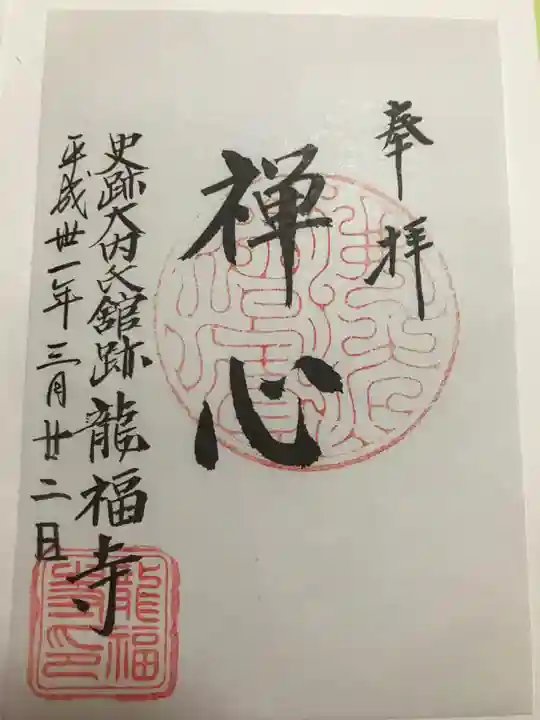 奉拝
禅心
史跡大内氏館跡龍福寺
平成丗一年三月廿二日
龍福寺印